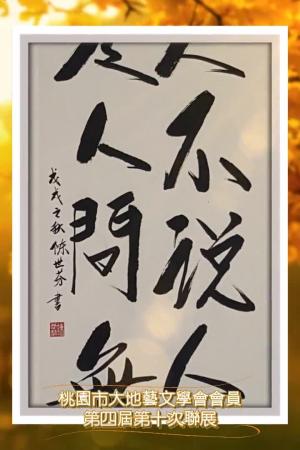 不說人
人問無
戊戌之秋 陳世芬 書
桃園市大地藝文學會會員
第四屆第十次聯展